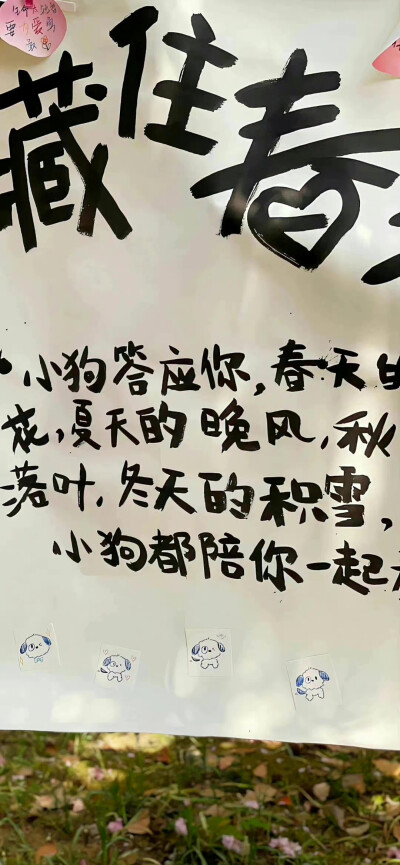 藏住春
小狗答应你,春天
花,夏天的晚风,秋
落叶,冬天的积雪,
小狗都陪你一起